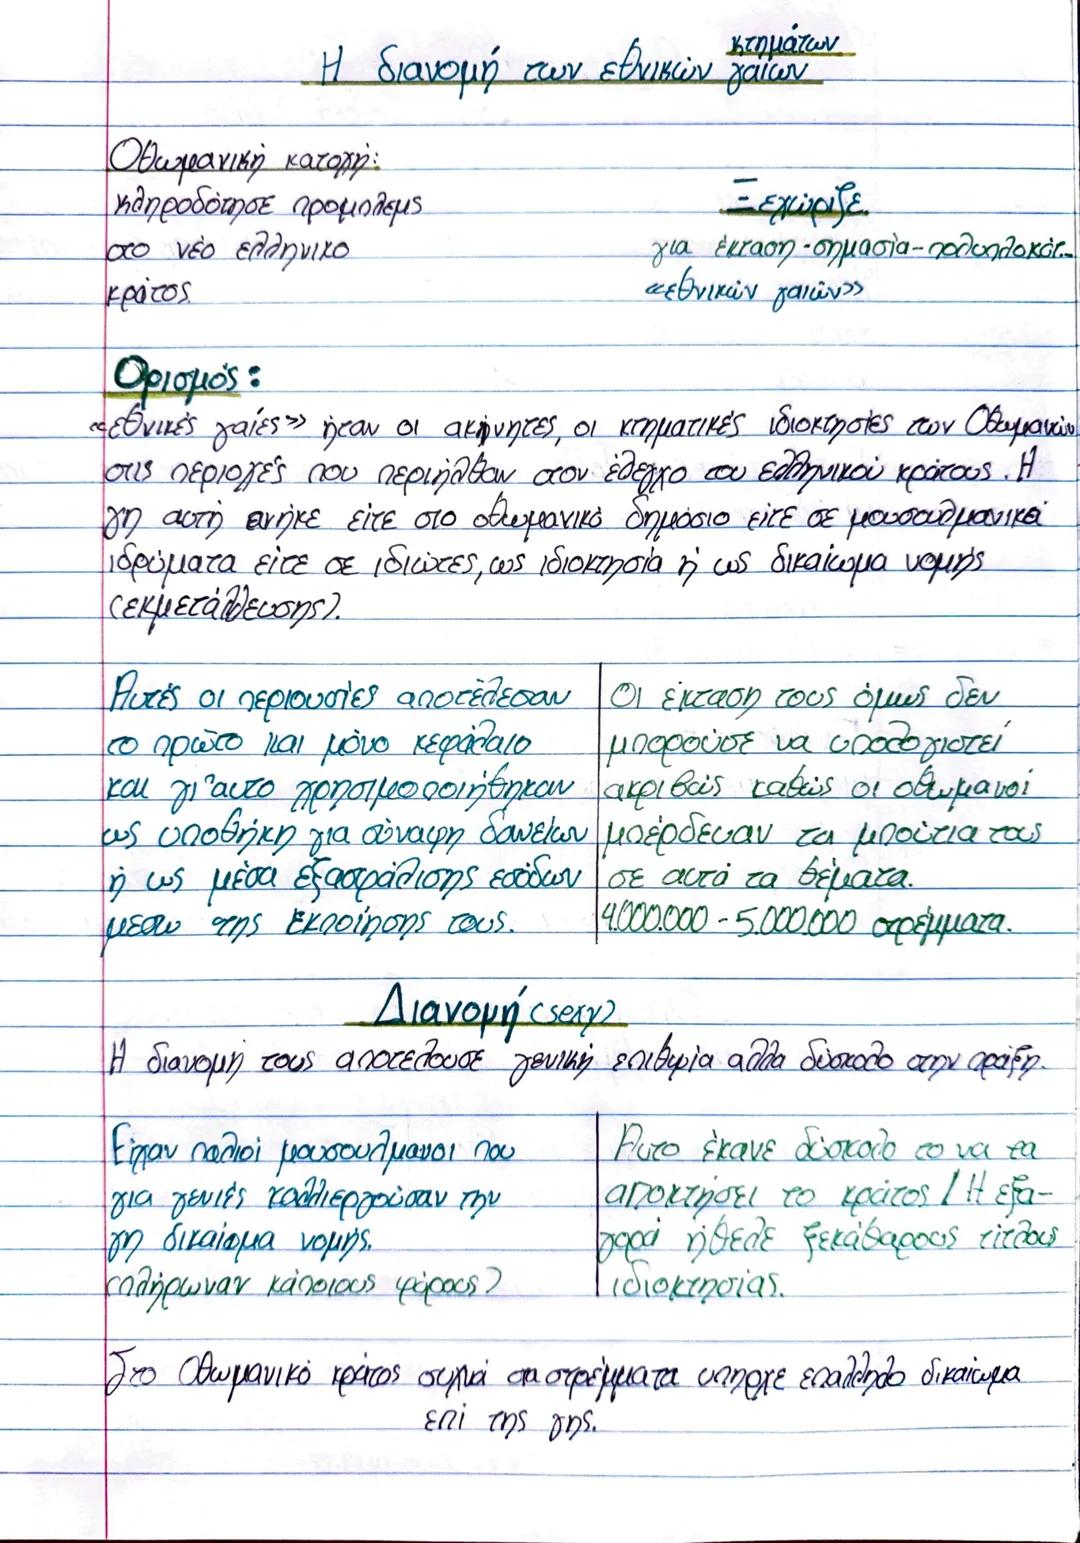 κτημάτων
Η διανομή των εθνικών γαιών
Οθωμανική κατοχή:
κληροδότησε προμπλεμς
στο νέο ελληνικο
κράτος.
Ξεχώριζε.
για έκταση-σημασία-πολυπλοκότ.
«εθνικών γαιών»
Ορισμός:
«εθνικές γαίες» ήταν οι ακίνητες, οι κτηματικές ιδιοκτησίες των Οθωμανών
στις περιοχές που περιήλθαν στον έλεγχο του ελληνικού κράτους. Η
γη αυτή ανήκε είτε στο οθωμανικό δημόσιο είτε σε μουσουλμανικά
ιδρύματα είτε σε ιδιώτες, ως ιδιοκτησία ή ως δικαίωμα νομής
(εκμετάλλευσης).
Αυτές οι περιουσίες αποτέλεσαν
το πρώτο και μόνο κεφάλαιο
και γι'αυτο χρησιμοποιήθηκαν
ως υποθήκη για σύναψη δανείων
ή ως μέσα εξασφάλισης εσόδων
μεσω της εκποίησης τους.
Οι έκταση τους όμως δεν
μπορούσε να υπολογιστεί
ακριβώς καθώς οι οθωμανοί
μπέρδευαν τα μπούτια τους
σε αυτά τα θέματα.
4.000.000 - 5.000.000 στρέμματα.
Διανομή (sexy)
Η διανομή τους αποτελούσε γενική επιθυμία αλλα δύσκολο στην πράξη.
Είχαν παλιοί μουσουλμανοι που
για γενιές καλλιεργούσαν την
γη δικαίωμα νομής.
(πλήρωναν κάποιους φόρους)
Αυτο έκανε δύσκολο το να τα
αποκτήσει το κράτος / Η εξα-
γορά ήθελε ξεκάθαρους τίτλους
ιδιοκτησίας.
Στο Οθωμανικό κράτος συχνά στα στρέμματα υπηρχε επαλληλο δικαίωμα
επί της γης.